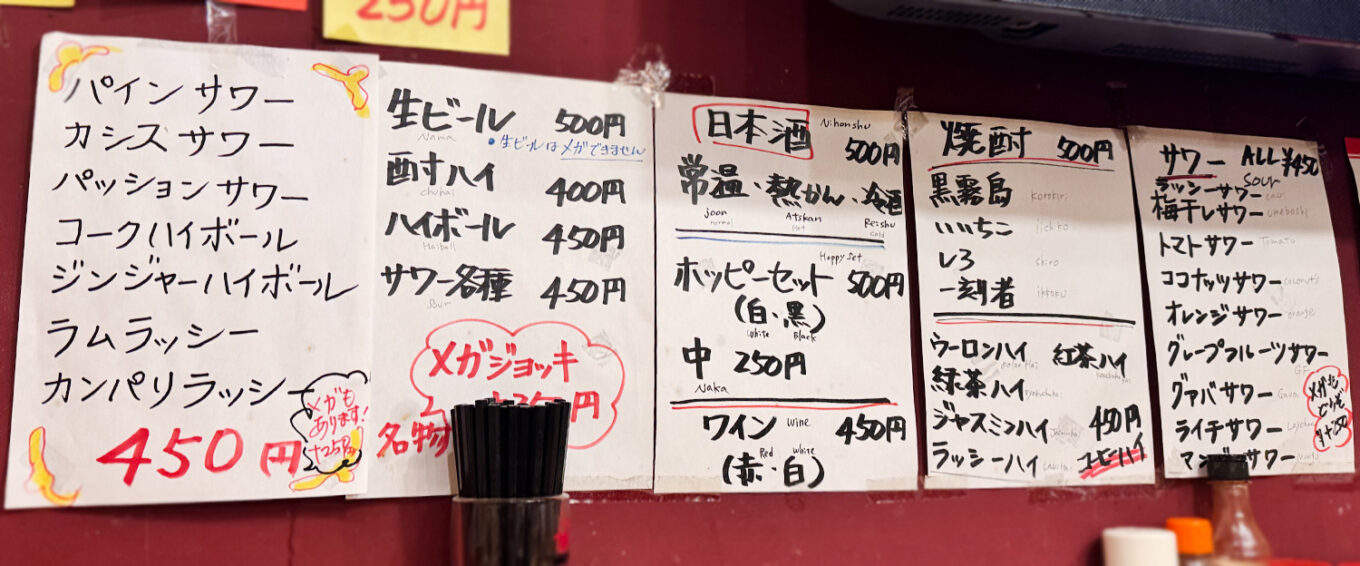 250円
パインサワー
カシスサワー
パッションサワー
コークハイボール
ジンジャーハイボール
ラムラッシー
カンパリラッシー
450円
メガも
あります!
+250円
生ビール 500円
Nama
・生ビールはメガできません
酎ハイ 400円
chuhai
ハイボール 450円
サワー各種 450円
Sour
メガジョッキ
円
名物
日本酒 Nihonshu 500円
常温・熱かん・冷酒
joon Atskan Reishu
normal Hot cold
Hoppy Set
ホッピーセット 500円
(白・黒)
White Black
中 250円
Naka
ワイン wine 450円
Red White
(赤・白)
焼酎 500円
黒霧島
いいちこ iichiko
しろ
一刻者
ウーロンハイ 紅茶ハイ
緑茶ハイ
ジャスミンハイ 450円
ラッシーハイ コーヒーハイ
サワー ALL ¥450
Sour
ラッシーサワー
梅干しサワー umeboshi
トマトサワー Tomato
ココナッツサワー coconut's
オレンジサワー orange
グレープフルーツサワー
GF
グァバサワー Gava
ライチサワー
マンゴーサワー